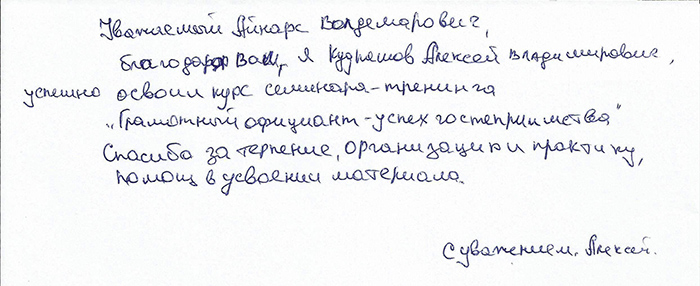 Уважаемый Айнарс Волдемарович,
благодаря Вам, я Кудряшов Алексей Владимирович,
успешно освоил курс семинара-тренинга
„Грамотный официант-успех гостеприимства"
Спасибо за терпение, организацию и практику,
помощ в усвоении материала.
С уважением, Алексей.